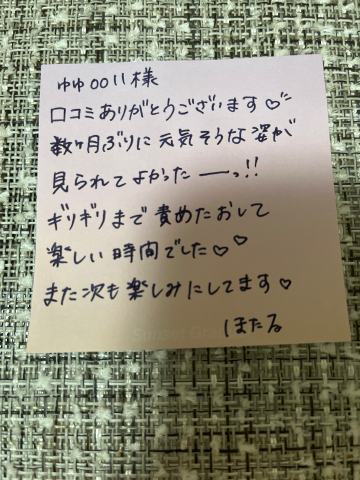 ゆゆ0011様
口コミありがとうございます♡
数ヶ月ぶりに元気そうな姿が
見られてよかったーっ!!
ギリギリまで責めたおして
楽しい時間でした♡♡
また次も楽しみにしてます♡
ほたる